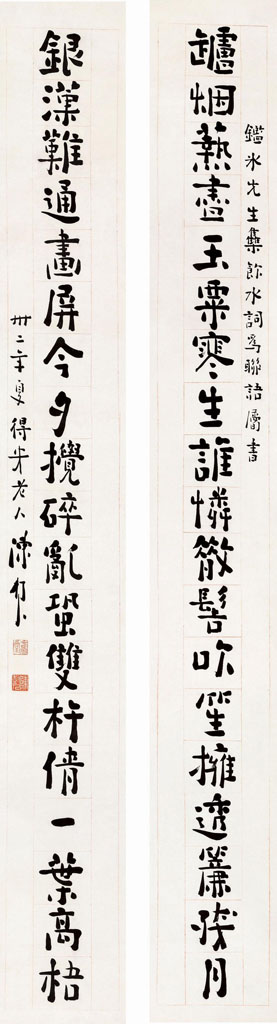 罏烟爇盡玉粟寒生誰憐散髻吹笙擁透簾殘月
鑑冰先生集飲水詞爲聯語屬書
銀漢難通畫屏今夕攪碎亂蛩雙杵倩一葉高梧
卅二年夏得步老人陳